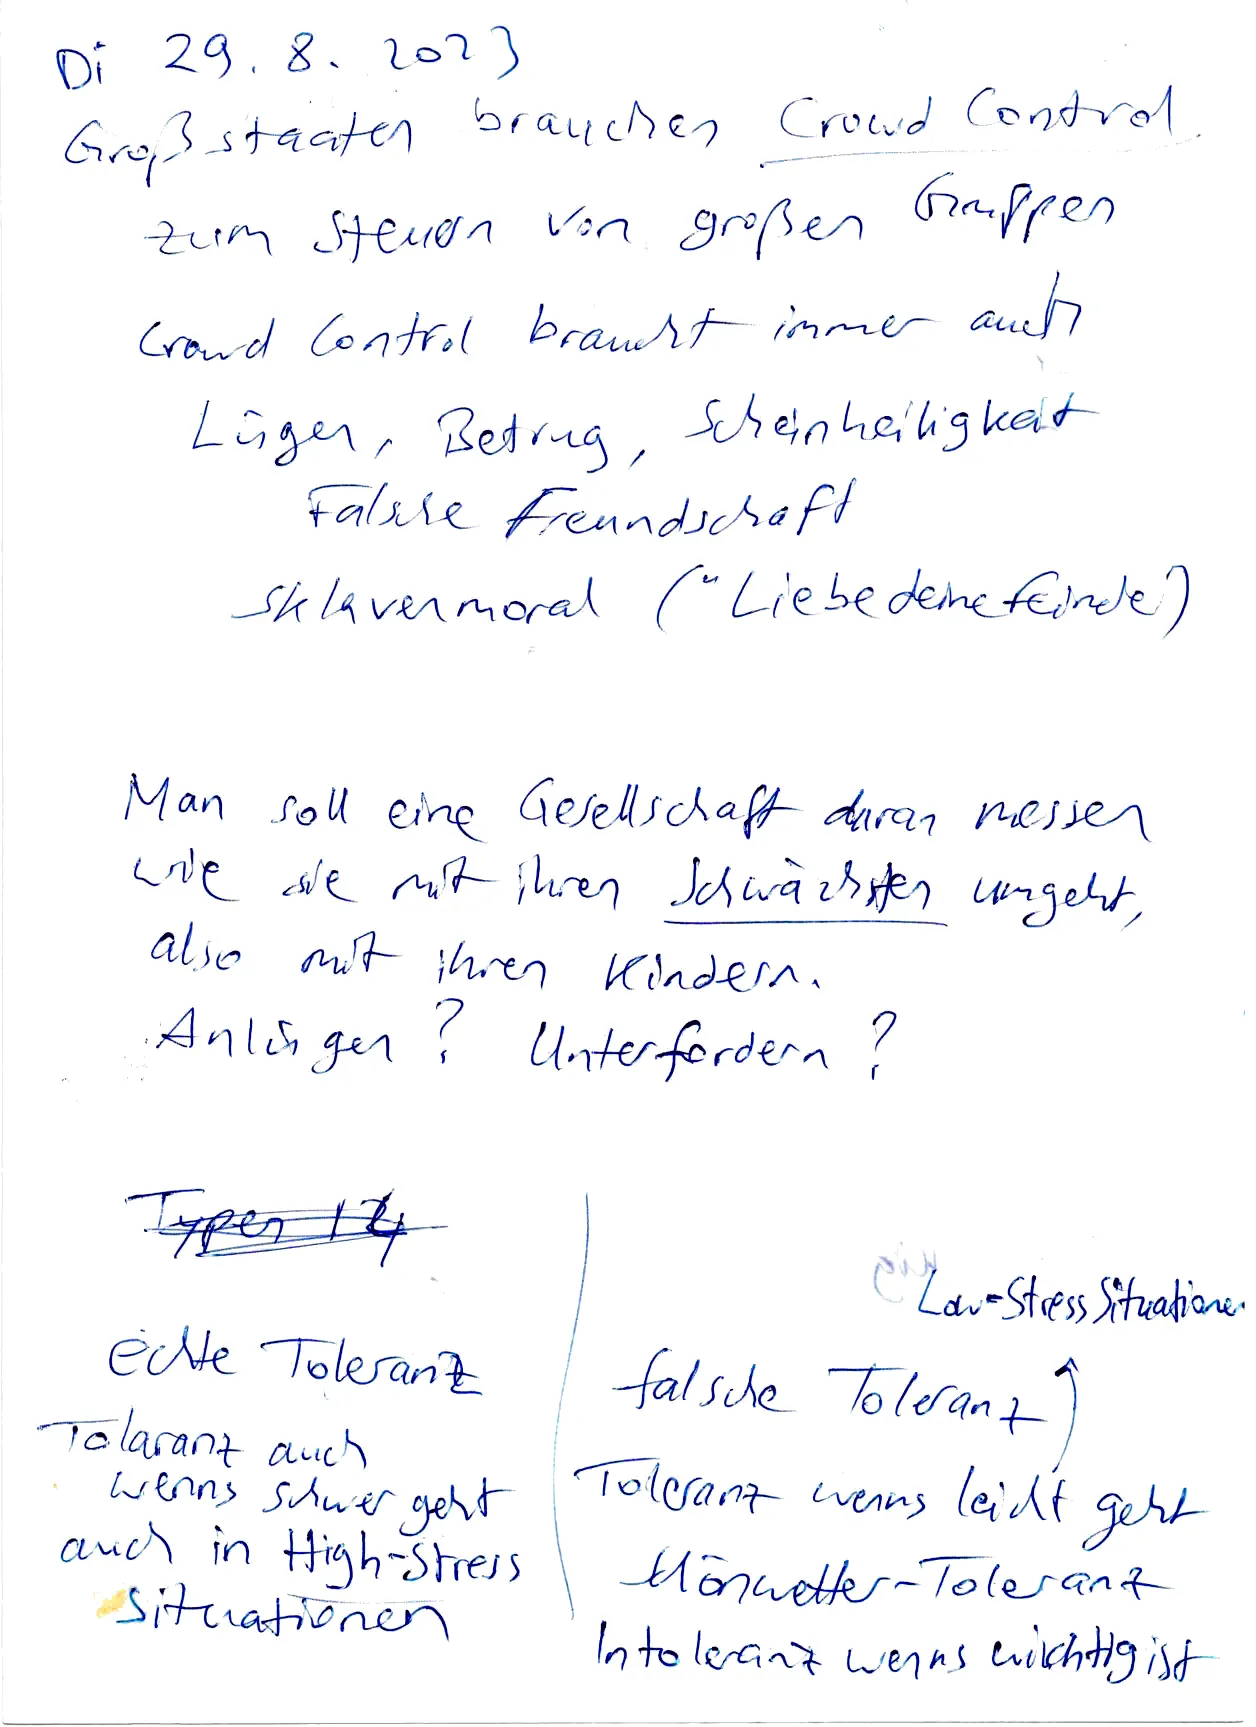 Di 29.8.2023
Großstaaten brauchen Crowd Control
zum Steuern von großen Gruppen
Crowd Control braucht immer auch
Lügen, Betrug, Scheinheiligkeit
Falsche Freundschaft
Sklavenmoral ("Liebe deine Feinde")
Man soll eine Gesellschaft daran messen
wie sie mit ihren Schwächsten umgeht,
also mit ihren Kindern.
Anlügen? Unterfordern?
Typen
echte Toleranz
Tolaranz auch
wenns schwer geht
auch in High-Stress
Situationen
Low-Stress Situationen
falsche Toleranz
Toleranz wenns leicht geht
Schönwetter-Toleranz
Intoleranz wenns wichtig ist